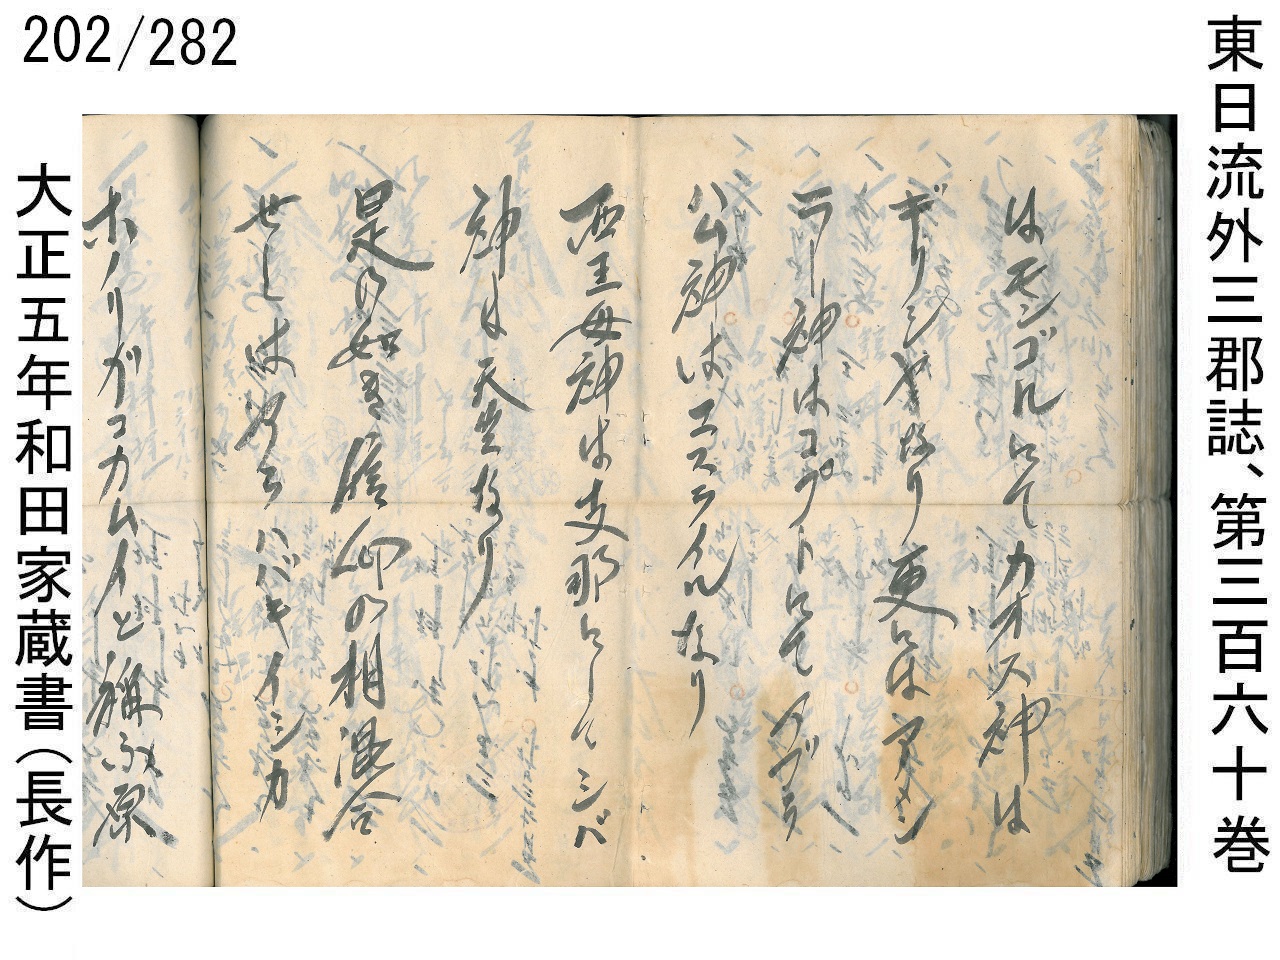 202/282
東日流外三郡誌、第三百六十巻
はモンゴルにてカオス神は
ギリシヤなり更にはアメン
ラー神はコプトにてアブラ
ハム神はエスライルなり
西王母神は支那にしてシバ
神は天竺なり
是の如き信仰の相混合
せしは吾らアラハバキイシカ
ホノリガコカムイと稱ふ原
大正五年和田家蔵書（長作）